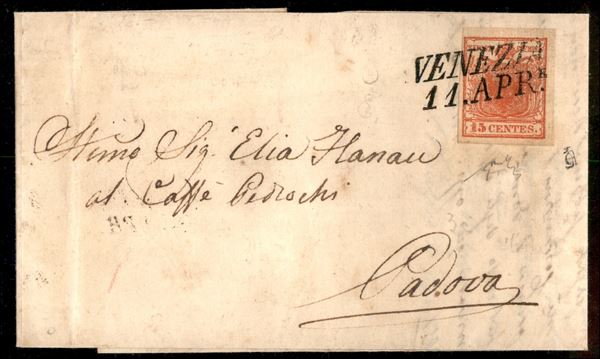 VENEZIA
11.APR.E
15 CENTES.
Stimo Sig.r Elia Hanau
al Caffè Pedrochi
Padova